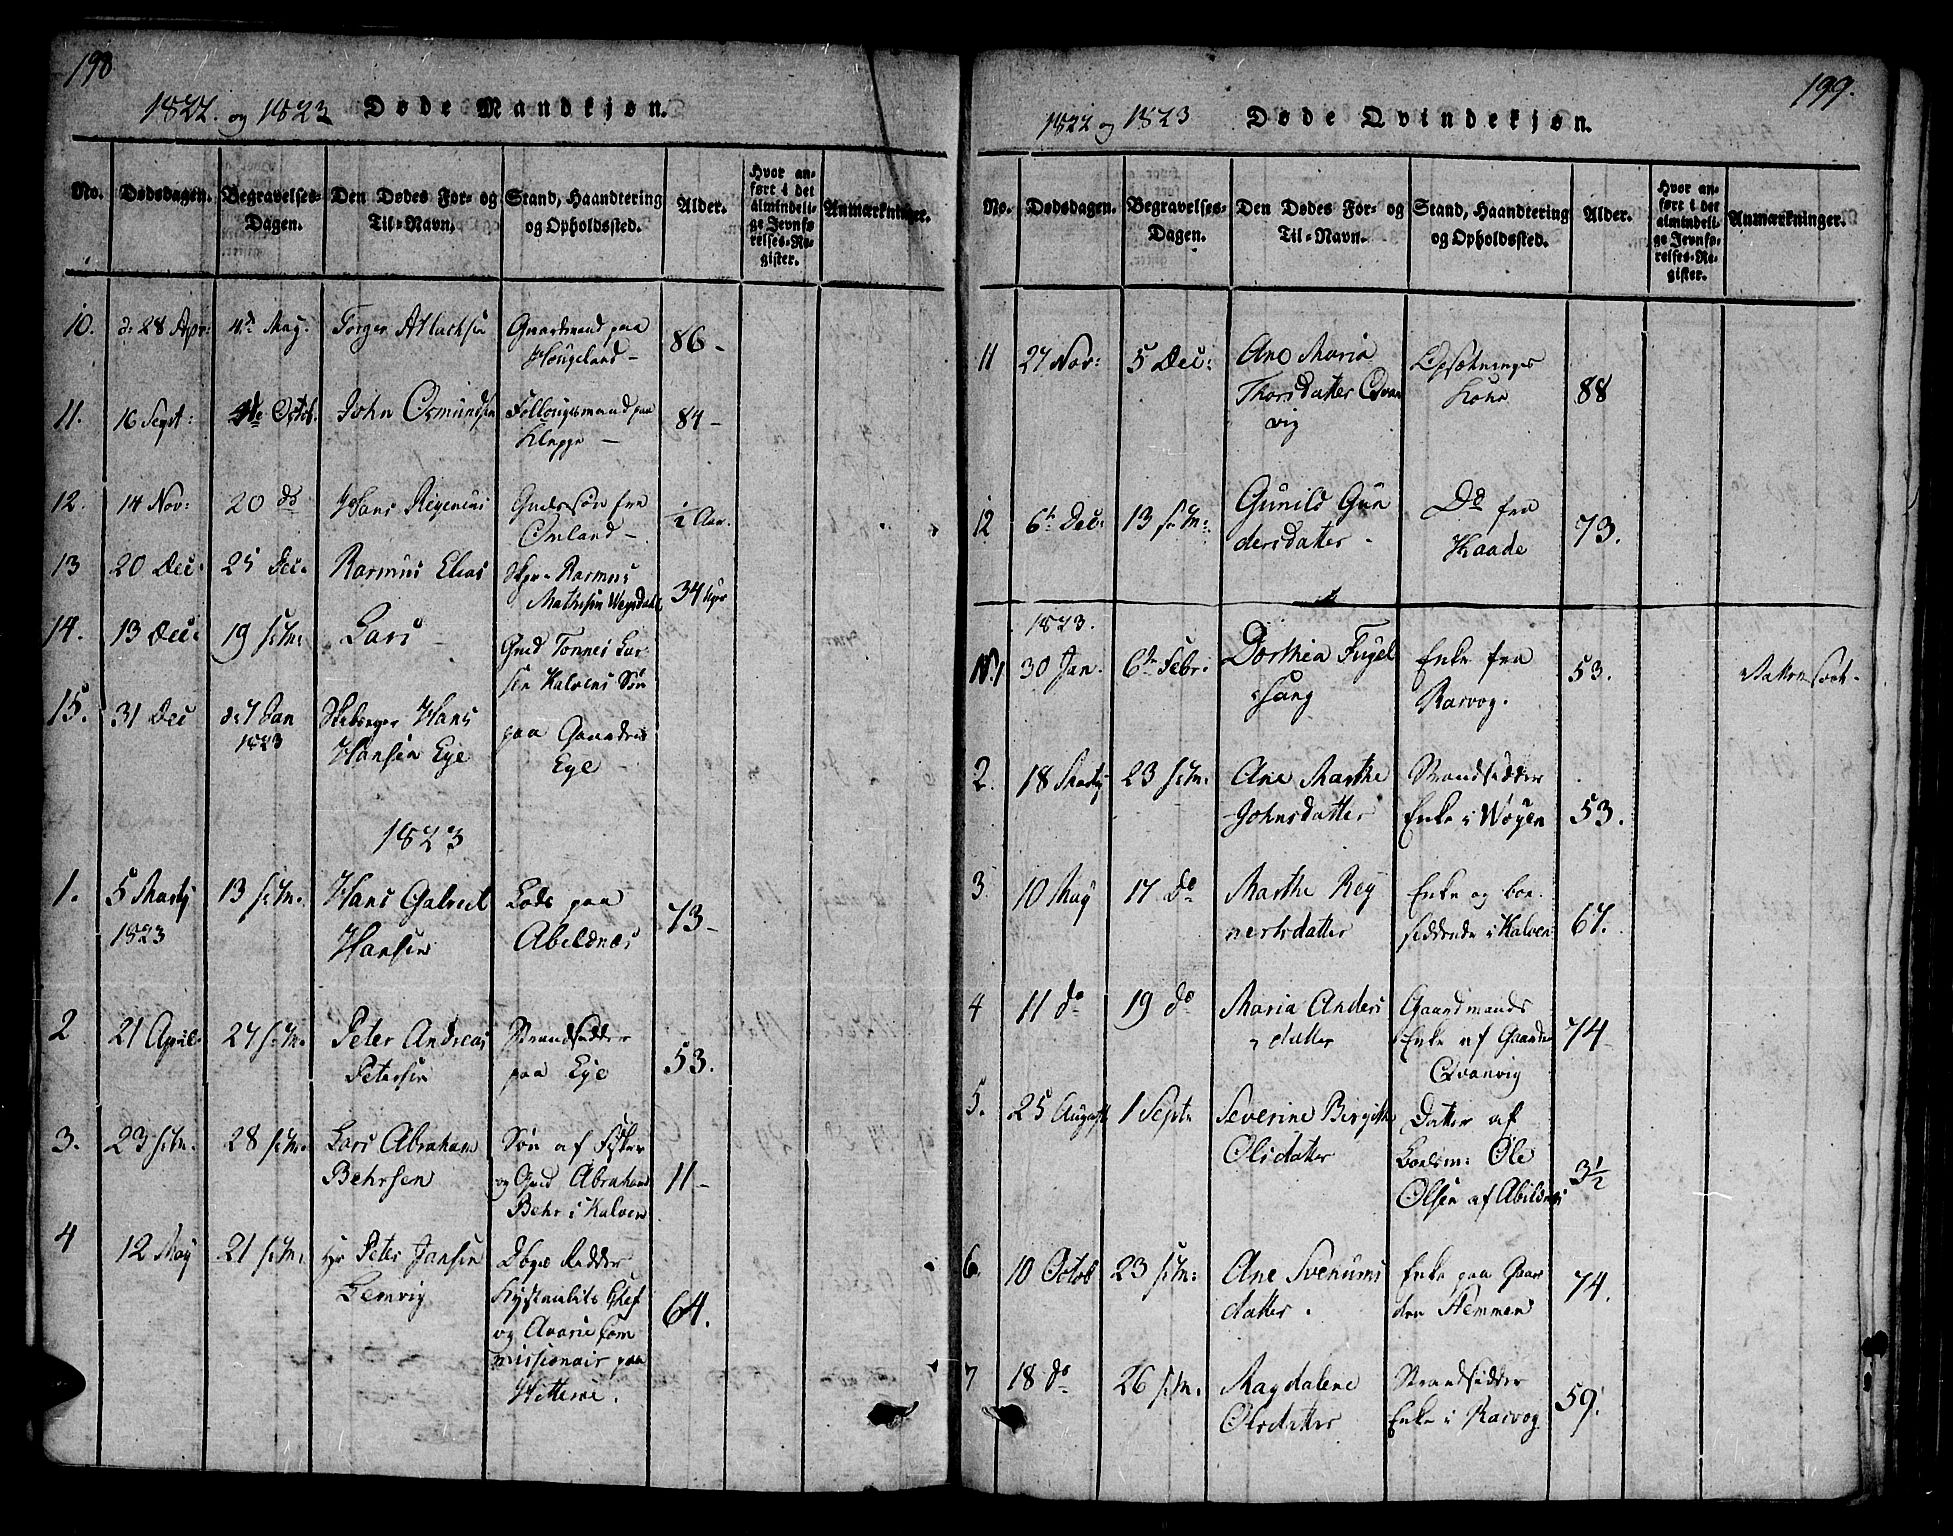 198
1822. og 1823 Døde Mandkjøn.
No. Dødsdagen. Begravelses-Dagen. Den Dødes For- og Til-Navn. Stand, Haandtering og Opholdssted. Alder. Hvor anført i det almindelige Jevnførelses-Register. Anmærkninger.
10. d: 28 Apr: 4de May: Torger Atlachsen Gaardmand paa
Hougeland - 86 -
11. 16 Sept: 4de Octob. John Osmundsen Follougsmand paa
Kleppe - 84 -
12. 14 Nov: 20 do Hans Regenius Gudssøn fra
Omland - ½ Aar.
13 20 Dec: 25 Dec. Rasmus Elias Rasmus
Mathisen 34 Uger
14. 13 Dec: 19 s: M: Lars - Gmd Tonnes Lar-
sen Kalvens Søn
15. 31 Dec d: 7 Jan Hans paa Gaarden
1823 Hansen Eye Eye -
1823
1. 5 Martj 13 s: M. Hans Gabreel Lods paa
1823 Hansen Abeldnæs 73 -
2 21 April. 27 s: M. Peter Andreas Strandsidder
Petersen paa Eye 53.
3. 23 s: M. 28 s: M. Lars Abraham Søn af Fisker
Behrsen og Gmd Abraham 11 -
Behr i Kalven
4 12 May 21 s: M. Hr Peter Jansen
Lemvig Chef
og Avarie Com 64.
missionair paa
Hitterøe.
199.
1822 og 1823 Døde Qvindekjøn.
No. Dødsdagen. Begravelses-Dagen. Den Dødes For- og Til-Navn. Stand, Haandtering og Opholdssted. Alder. Hvor anført i det almindelige Jevnførelses-Register. Anmærkninger.
11 27 Nov: 5 Dec: Ane Maria Opsætnings
Thorsdatter Qvan Kone 88
vig
12 6te Dec: 13 s: M: Gunild Gun Do fra
dersdatter - Haade 73.
1823.
No. 1 30 Jan. 6te Febr: Dorthea Fugel Enke fra 53.
sang Rasvog.
2. 18 Martj 23 s: M: Ane Marthe Strandsidder
Johnsdatter Enke i Wogen 53.
3 10 May 17 Do Marthe Rey Enke og boe-
nertsdatter siddende i Kalven 67.
4 11 do 19 do Maria Anders Gaardmands
datter Enke af Gaarden 74
Qvanvig
5. 25 August 1 Septr Severine Birgitte Datter af
Olsdatter Lodsm: Ole 3½
Olsen af Abildnæs
6. 10 Octob 23 s: M: Ane Svenums Enke paa Gaar
datter. den Stemmen 74.
7 18 do 26 s: M. Magdalene Strandsidder
Olsdatter Enke i Rasvog 59.